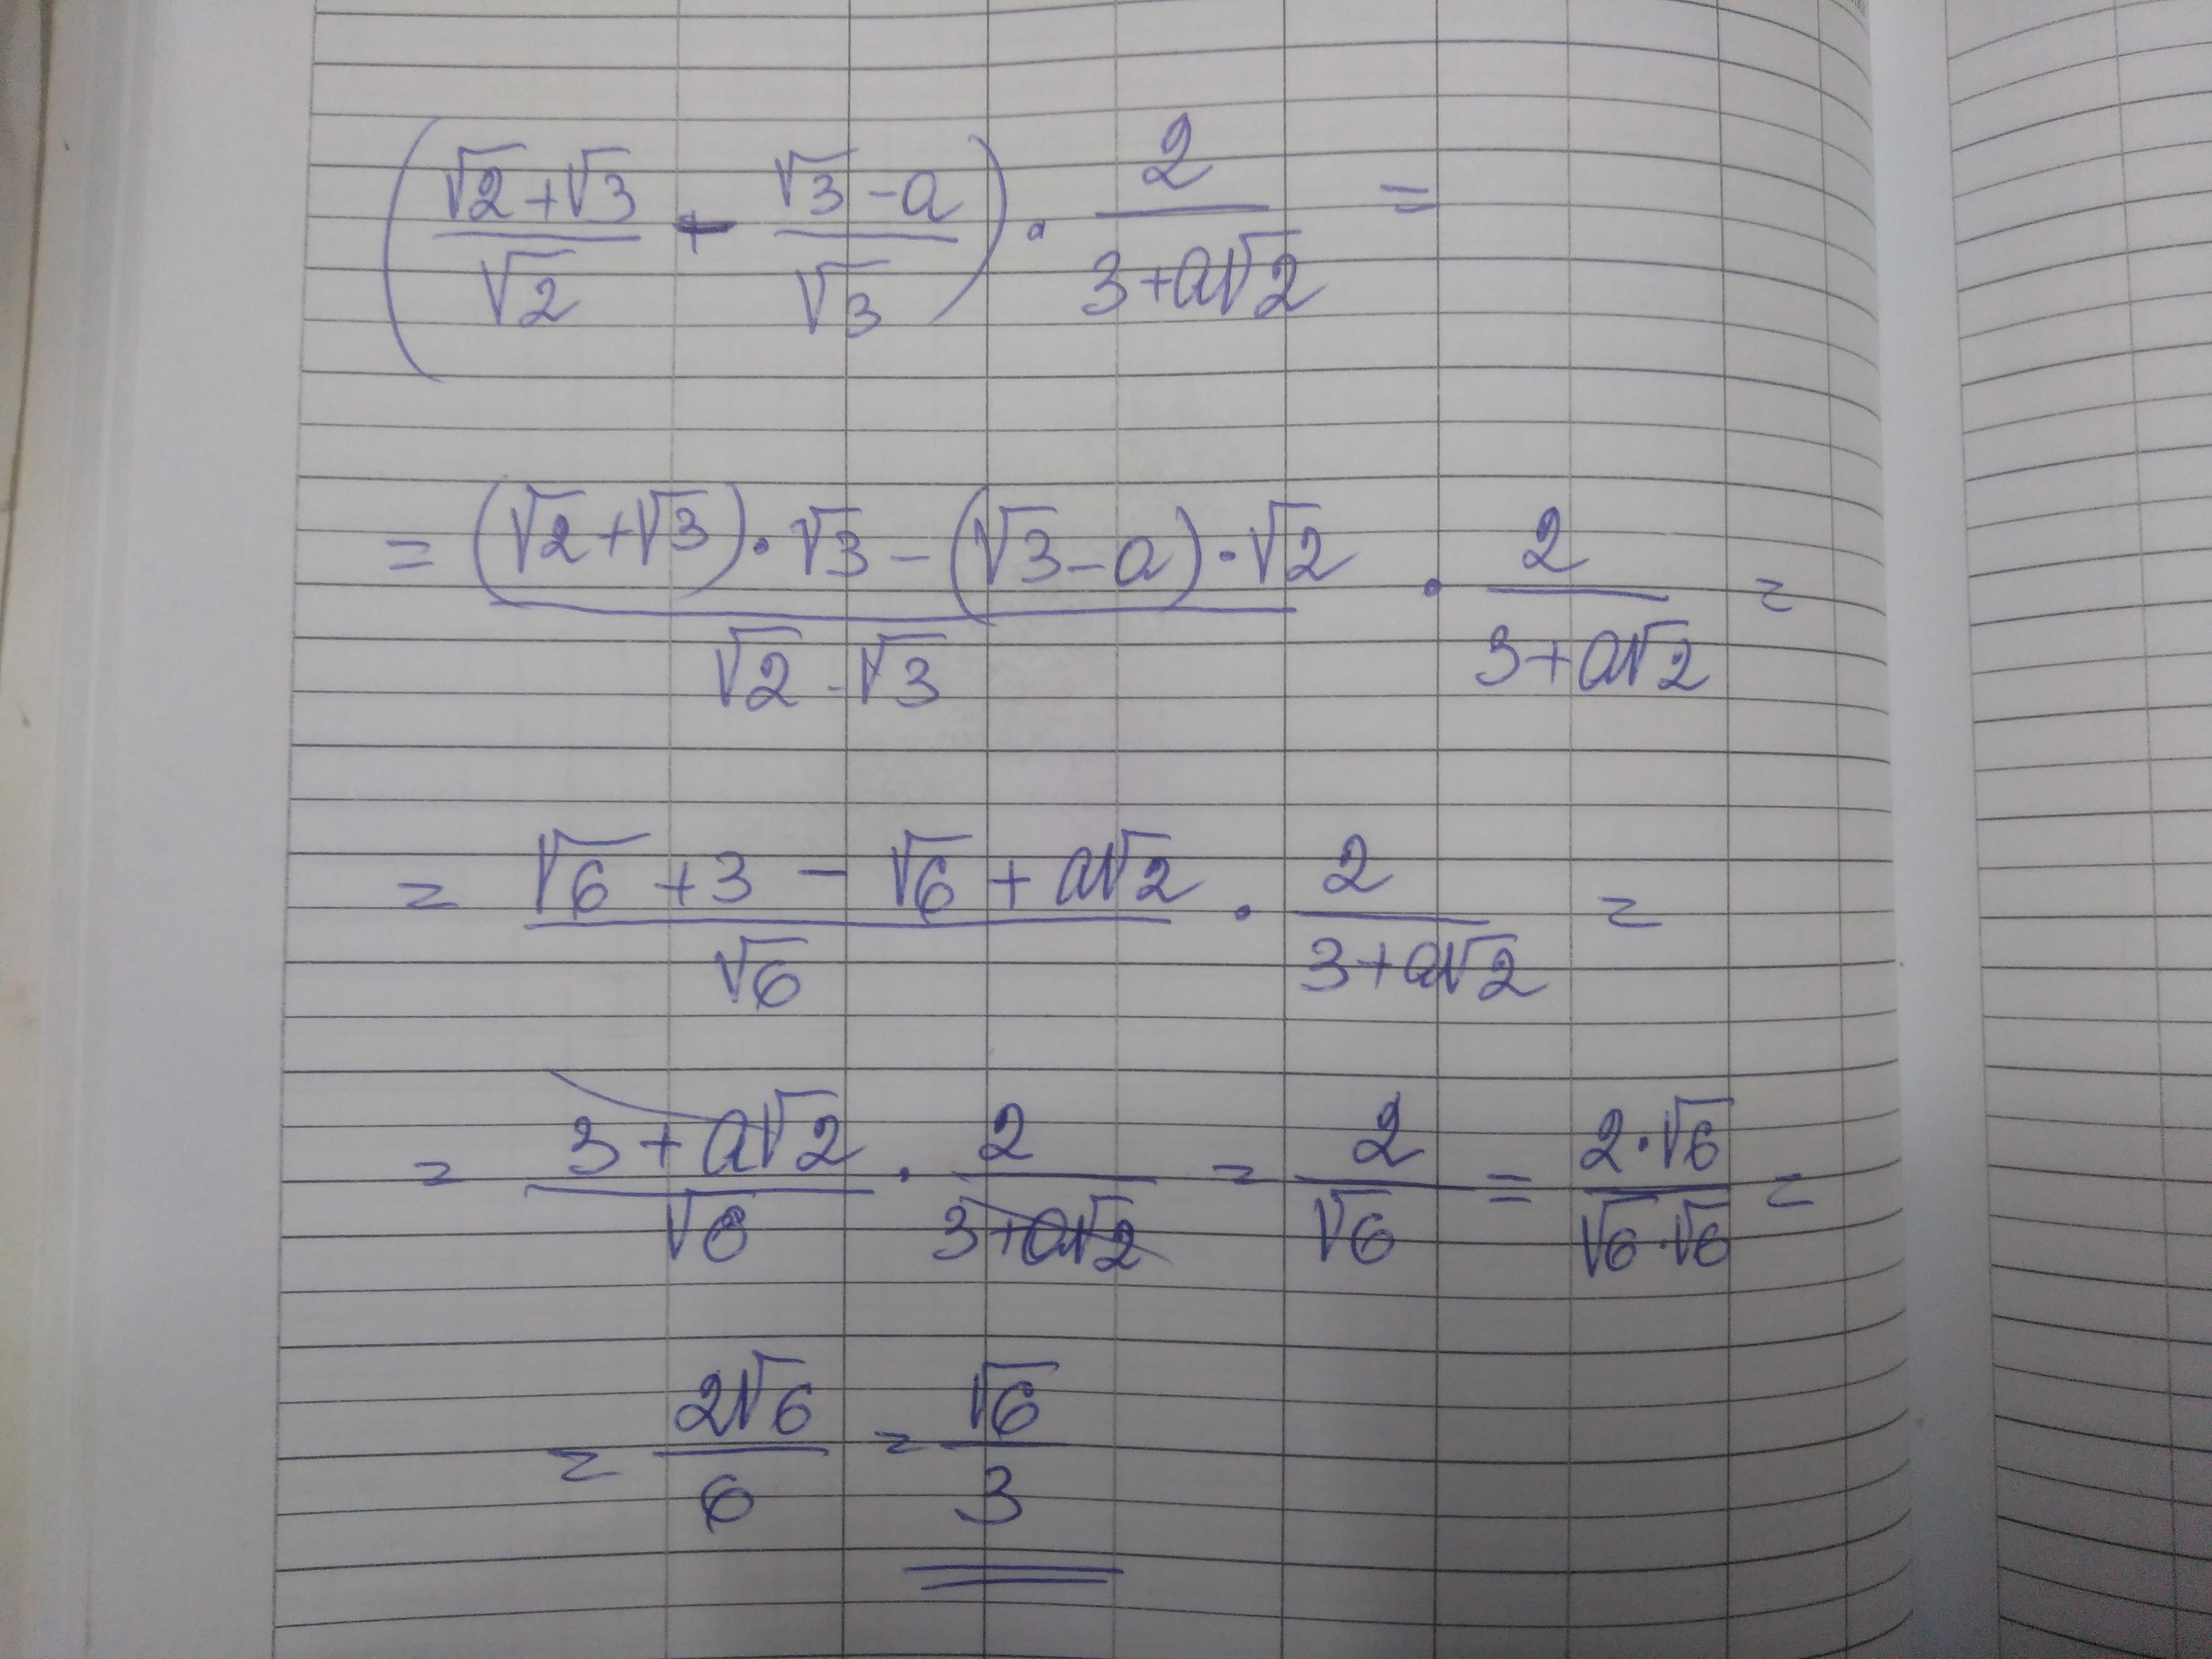 (\frac{√2+√3}{√2} - \frac{√3-a}{√3}) · \frac{2}{3+a√2} =
= \frac{(√2+√3)·√3-(√3-a)·√2}{√2·√3} · \frac{2}{3+a√2} =
= \frac{√6+3-√6+a√2}{√6} · \frac{2}{3+a√2} =
= \frac{3+a√2}{√6} · \frac{2}{3+a√2} = \frac{2}{√6} = \frac{2·√6}{√6·√6} =
= \frac{2√6}{6} = \frac{√6}{3}